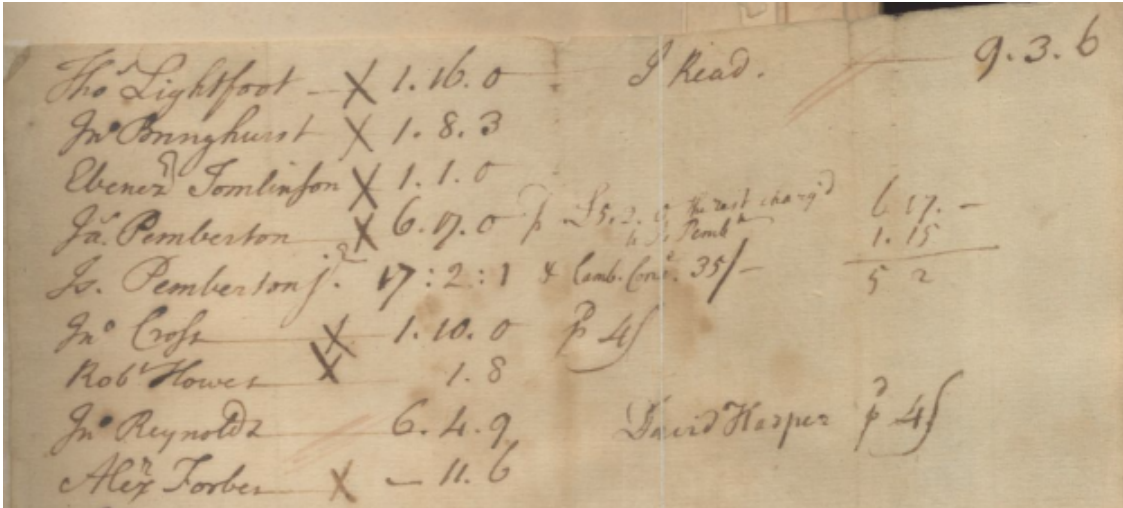 Tho.s Lightfoot X 1.16.0 J Read. 9.3.6
Jno Bringhurst X 1.8.3
Ebenez.r Tomlinson X 1.1.0
Ja.s Pemberton X 6.17.0 p £5.2.0 the rest charg'd 6 17. -
to Is. Pemb.n 1.15
Is. Pemberton j.r 17:2:1 & Camb. 35/- 5 2
Jno Cross X 1.10.0 p.d 4/
Rob.t Howes X 1.8
Jno Reynolds 6.4.9 David Harper p.d 4/
Alex.r Forbes X - 11.6